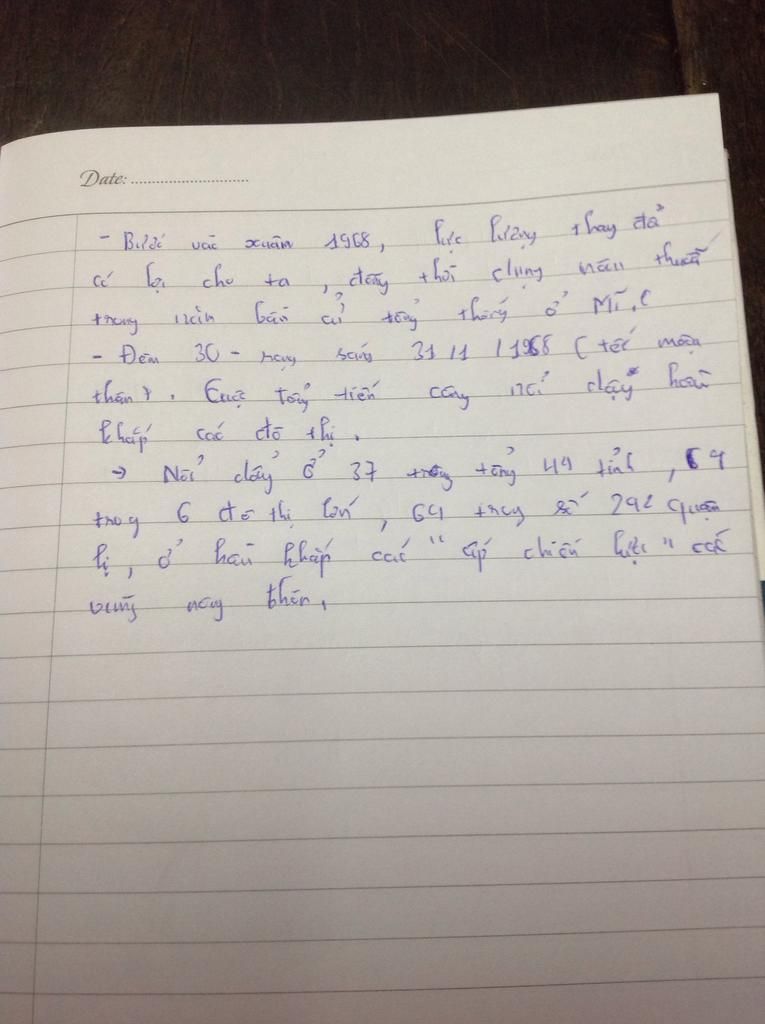 Date: ............................
- Bước vào xuân 1968, lực lượng thay đổi
có lợi cho ta, đồng thời dụng mâu thuẫn
trong năm bầu cử tổng thống ở Mĩ.
- Đêm 30 - rạng sáng 31/1/1968 (tết mậu
thân). Cuộc tổng tiến công nổi dậy hầu
khắp các đô thị.
→ Nổi dậy ở 37 trong tổng 44 tỉnh,
trong 6 đô thị lớn, 64 trong số 242 quận
lị, ở hầu khắp các "ấp chiến lược" các
vùng nông thôn.